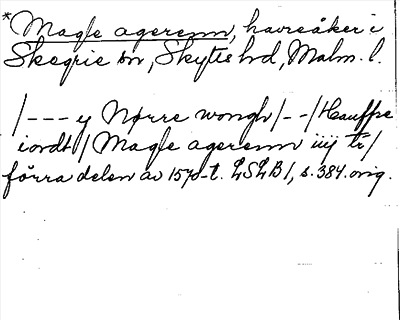 *Magle agerenn, havreåker i
Skegrie sn, Skytts hd, Malm. l.
/--- y Nørre wongh /--/ Hauffre
iordt / Magle agerenn iiij tr /
förra delen av 1570-t. LSLB 1, s. 384. orig.